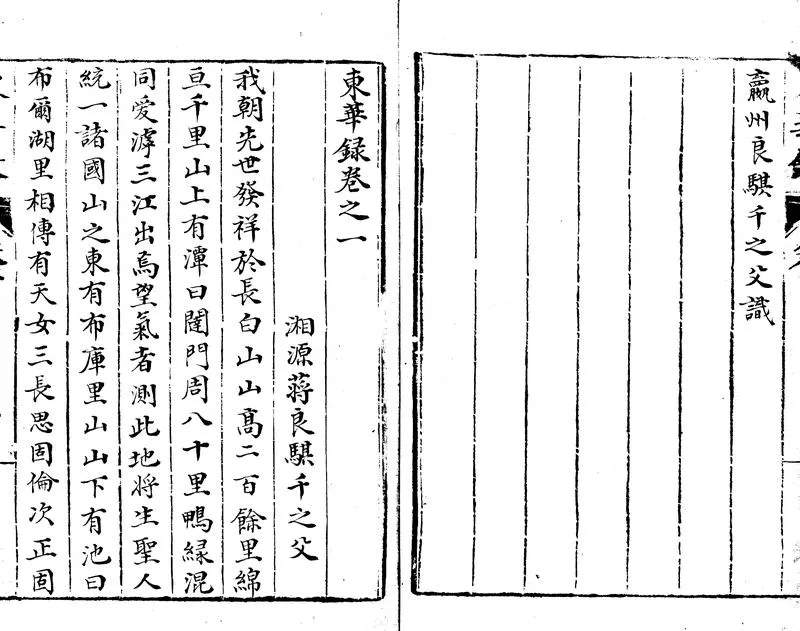 嬴州良騏千之父識
東華録卷之一
湘源蔣良騏千之父
我朝先世發祥於長白山山高二百餘里綿
亘千里山上有潭曰闥門周八十里鴨緑混
同愛滹三江出焉望氣者測此地將生聖人
統一諸國山之東有布庫里山山下有池曰
布爾湖里相傳有天女三長思固倫次正固